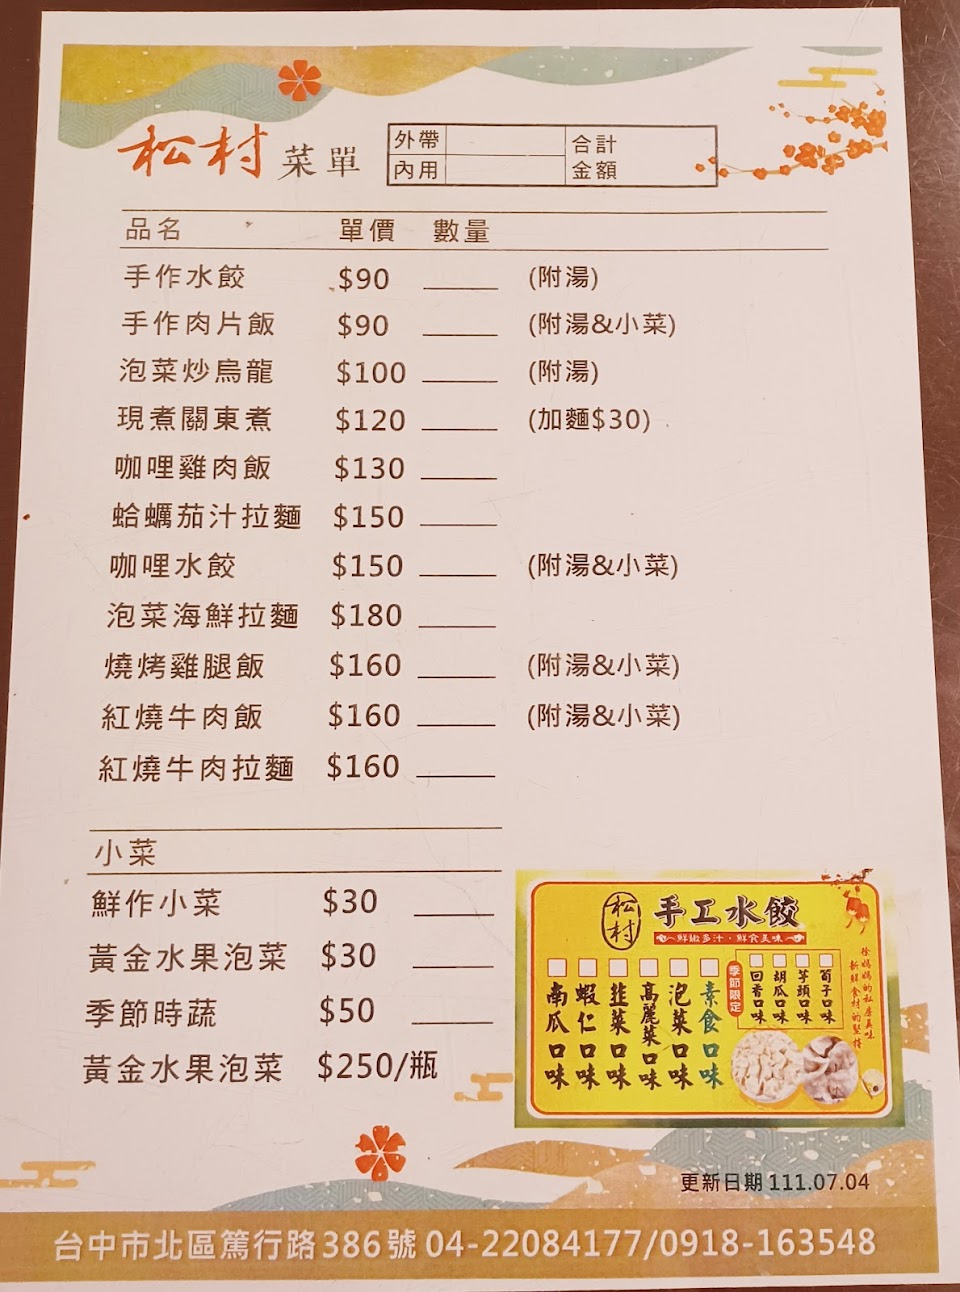 松村 菜單
外帶
內用
合計
金額
品名 單價 數量
手作水餃 $90 (附湯)
手作肉片飯 $90 (附湯&小菜)
泡菜炒烏龍 $100 (附湯)
現煮關東煮 $120 (加麵$30)
咖哩雞肉飯 $130
蛤蠣茄汁拉麵 $150
咖哩水餃 $150 (附湯&小菜)
泡菜海鮮拉麵 $180
燒烤雞腿飯 $160 (附湯&小菜)
紅燒牛肉飯 $160 (附湯&小菜)
紅燒牛肉拉麵 $160
小菜
鮮作小菜 $30
黃金水果泡菜 $30
季節時蔬 $50
黃金水果泡菜 $250/瓶
松村 手工水餃
鮮嫩多汁・鮮食美味
南瓜口味
蝦仁口味
韮菜口味
高麗菜口味
泡菜口味
素食口味
季節限定
回香口味
胡瓜口味
芋頭口味
筍子口味
徐媽媽的私房美味
新鮮食材的堅持
更新日期 111.07.04
台中市北區篤行路386號 04-22084177/0918-163548